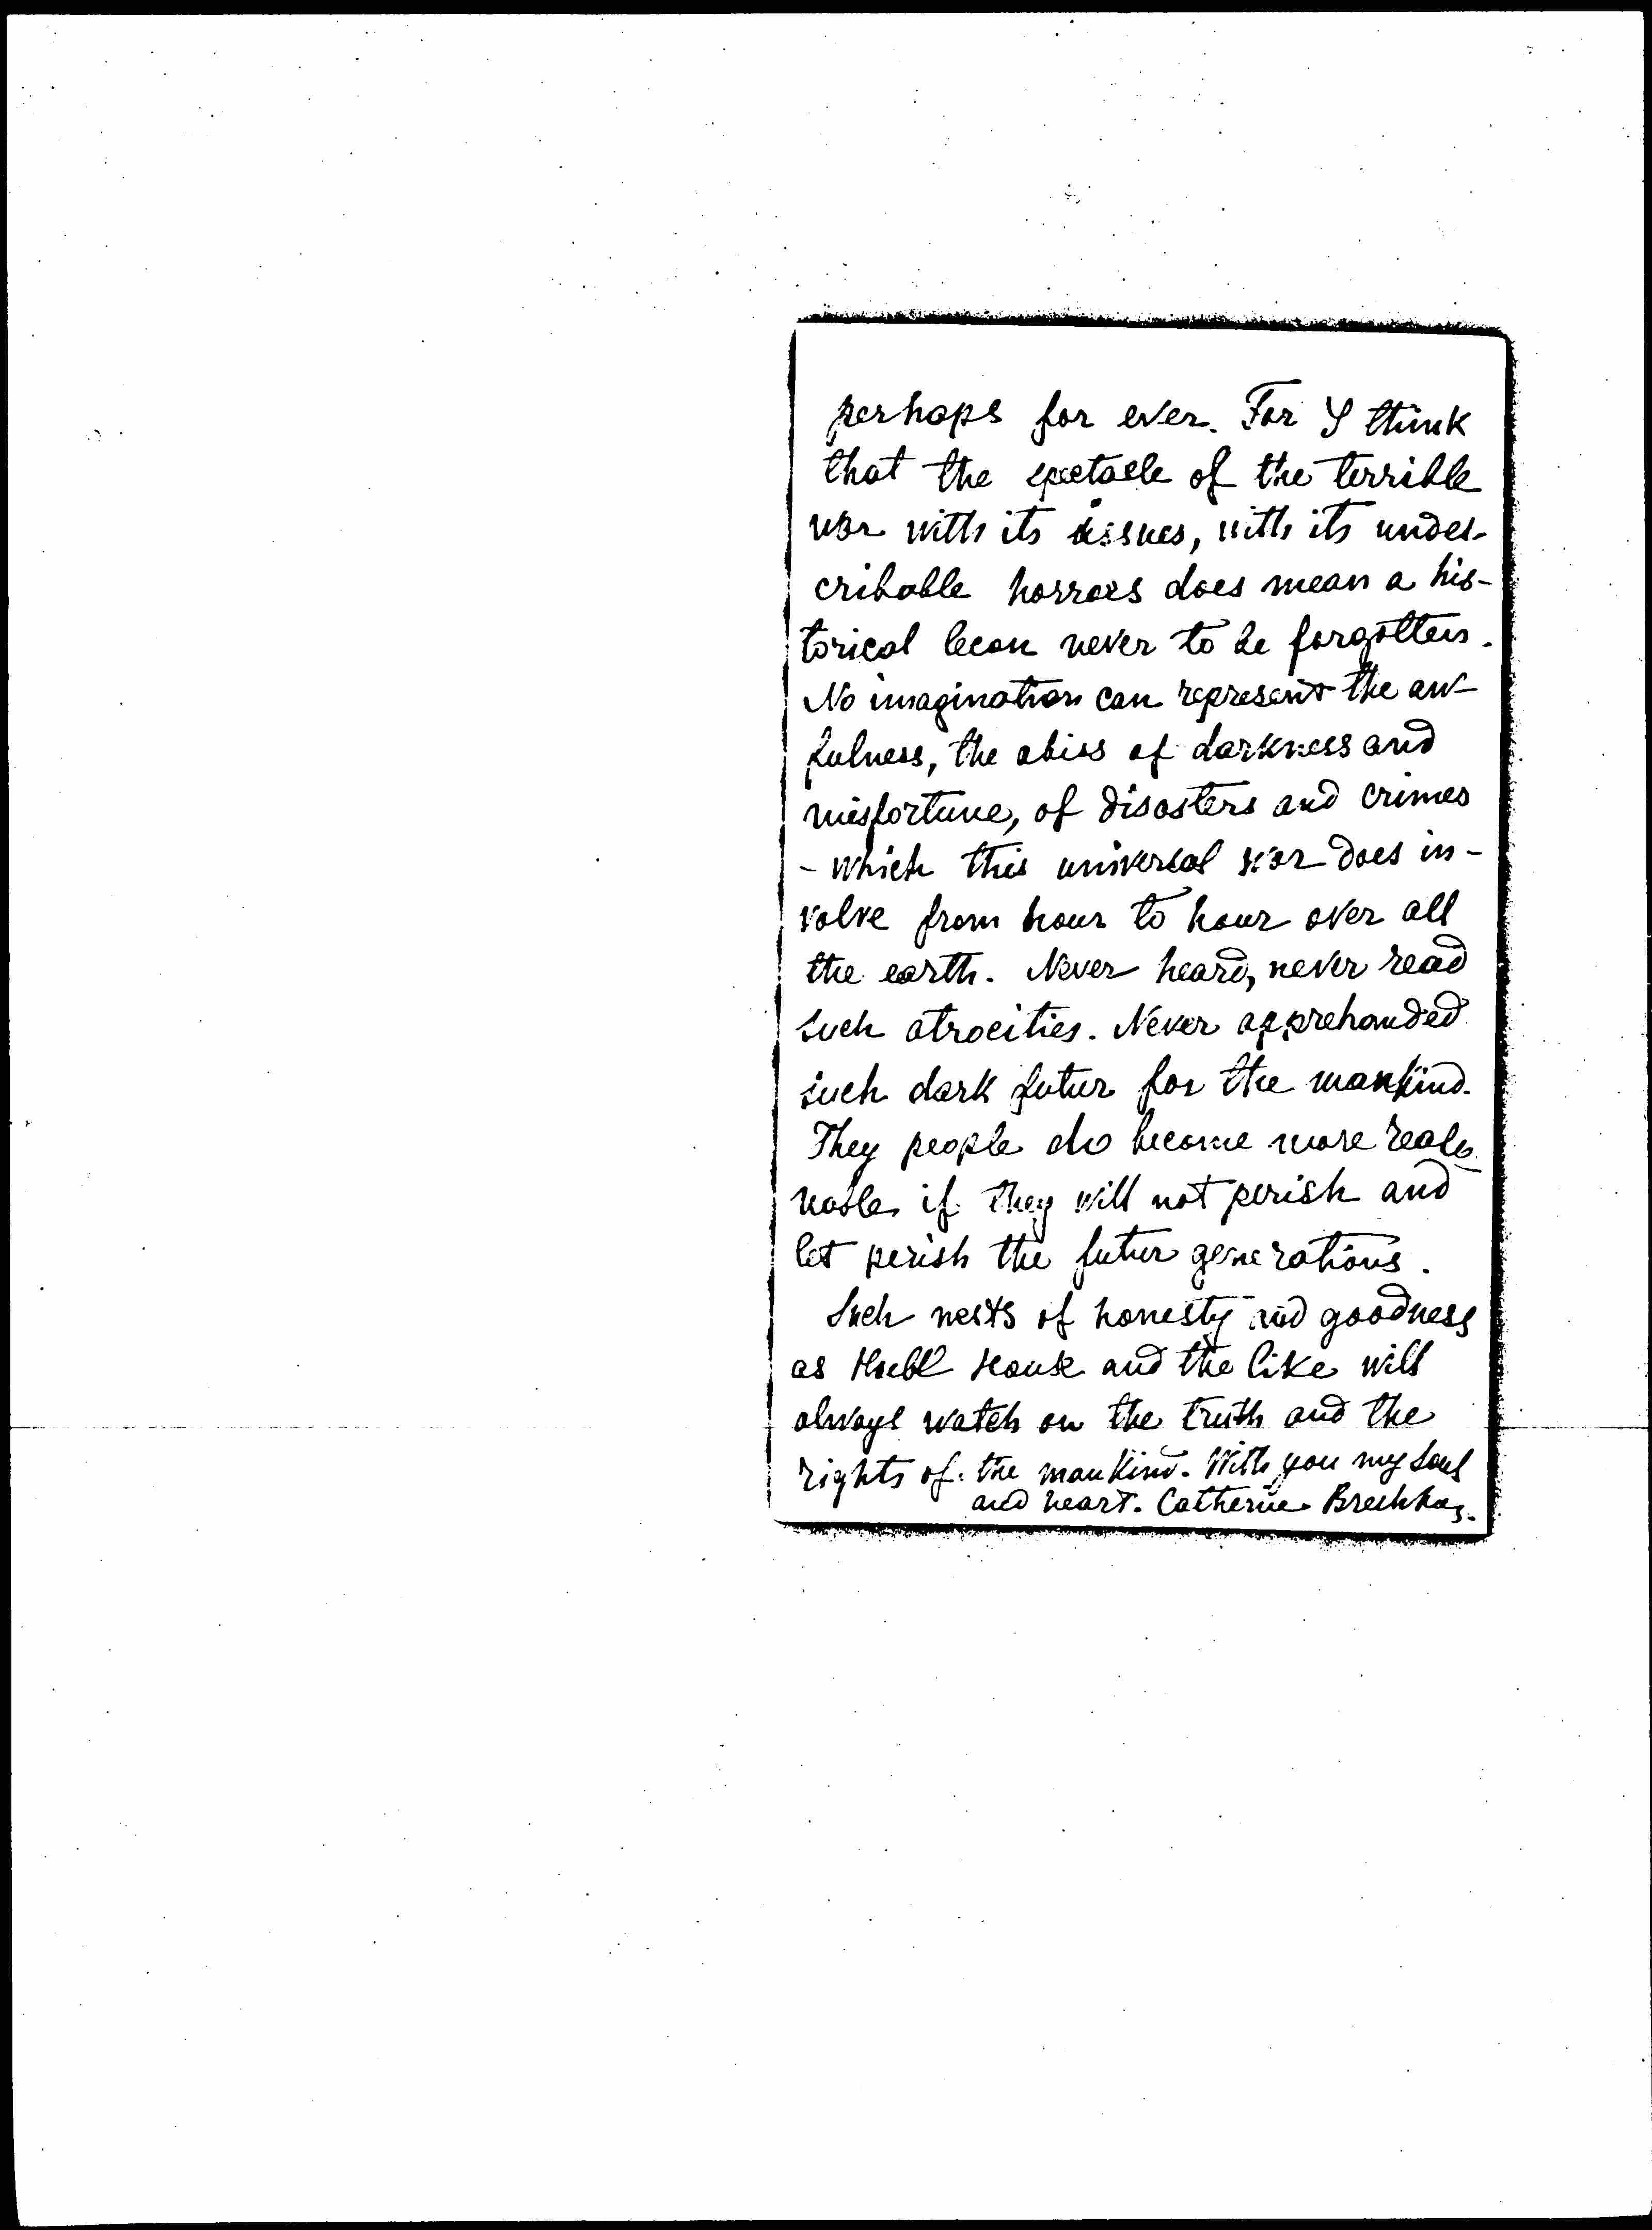 perhaps for ever. For I think
that the spectacle of the terrible
war with its issues, with its undes-
cribable horrors does mean a his-
torical lecon never to be forgotten.
No imagination can represent the aw-
fulness, the abiss of darkness and
misfortune, of disasters and crimes
- which this universal war does in-
volve from hour to hour over all
the earth. Never heard, never read
such atrocities. Never apprehanded
such dark futur for the mankind.
They people do become more reaso-
nable if they will not perish and
let perish the futur generations.
Such nests of honesty and goodness
as Hull House and the like will
always watch on the truth and the
rights of the mankind. With you my soul
and heart. Catherine